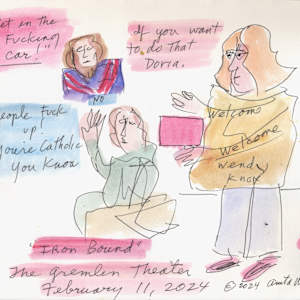 et in the
Fucking
car!"
If you want
to do that
Doria.
NO
eople Fuck
up!
You're Catholic
You Know
Welcome
Welcome
Wendy
Knox
"Iron Bound"
The Gremlin Theater
February 11, 2024
©2024 Anita W